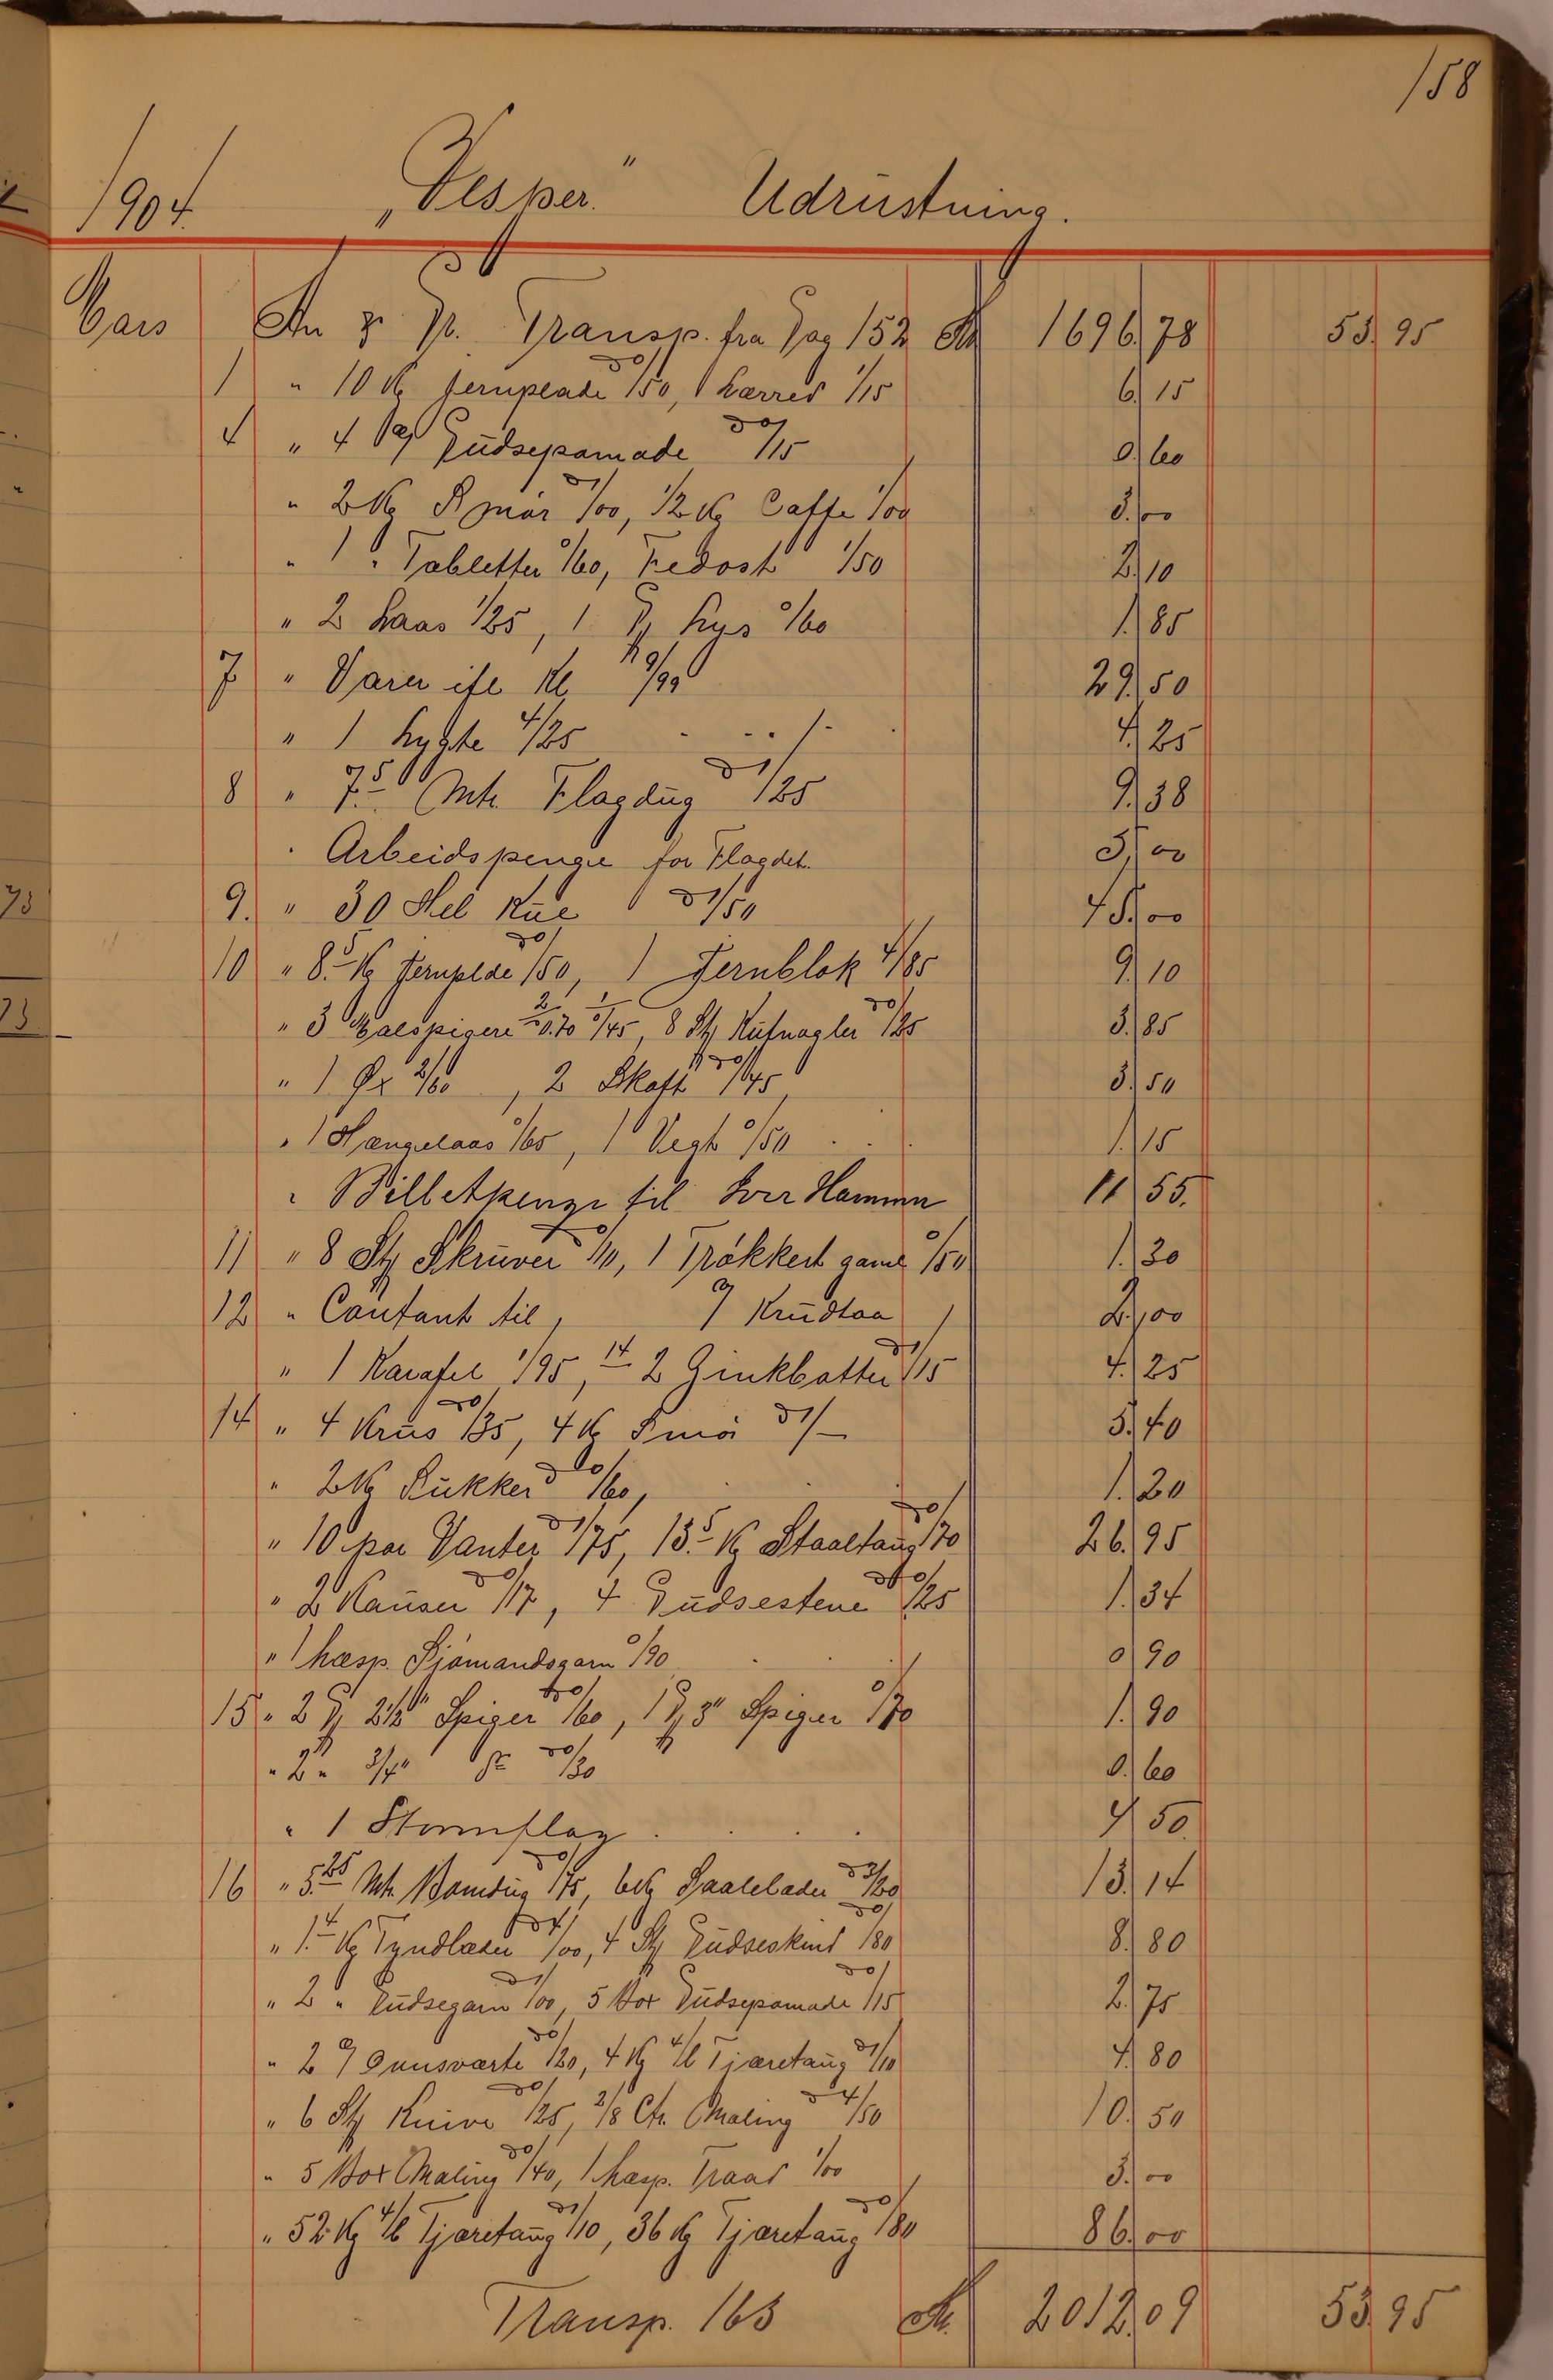 158
1904. „Vesper" Udrustning.
Mars An & Pr. Transp. fra Pag 152 Kr 1696 78 53 95
1 " 10 Kg Jernplade 0/50, 1 Lærred 1/15 6 15
4 " 4 Gudsepomade 0/15 0 60
" 2 Kg Smør 1/00, 1/2 Kg Caffe 1/00 3.00
" 1 " Tabletter 0/60, Fedost 1/50 2 10
" 2 Laas 1/25, 1 Lys 0/60 1.85
7 " Varer ifl 29.50
" 1 Lygte 4/25 4 25
8 " 7.5 Mtr. Flagdug 1/25 9.38
" Arbeidspenge for Flagdet. 5.00
9. " 30 Hel 1/50 45.00
10 " 8.5 Kg Jernplde 0/50, 1 Jernblok 4/85 9 10
" 3 2 0.70 1 0/45, 8 St 0/25 3.85
" 1 Øx 2/60, 2 Skaft 0/45 3.50
" 1 Hængelaas 0/65, 1 Vegt 0/50 1.15
" Billetpenge til Hammer 11 55.
11 " 8 St Skruver 0/10, 1 0/50 1.30
12 " Contant til, 2.00
" 1 Karafel 1/95, 14 2 1/15 4.25
14 " 4 Krus 0/35, 4 Kg Smør 1/– 5.40
" 2 Kg Sukker 0/60, 1.20
" 10 par Vanter 1/75, 13.5 Kg Staaltaug 0/70 26.95
" 2 Kauser 0/17, 4 Gudsestene 0/25 1.34
" 1 hæsp. Sjømandsgarn 0/90 0 90
15 " 2 2 1/2" Spiger 0/60, 1 3" Spiger 0/70 1.90
" 2 " 3/4" 0/30 0.60
" 1 Stormflag 4 50
16 " 5.25 Mtr. Bomdug 0/75, 6 Kg Saalelæder 3/20 13.14
" 1.4 Kg Tyndlæder 4/00, 4 St Gudseskind 0/80 8.80
" 2 " Gudsegarn 1/00, 5 Box Gudsepomade 0/15 2.75
" 2 Ounsværte 0/20, 4 Kg Tjæretaug 1/10 4.80
" 6 St Knive 0/25, 2/8 Ctr. Maling 4/50 10.50
" 5 Box Maling 0/40, 1 hæsp. Traad 1/00 3.00
" 52 Kg Tjæretaug 1/10, 36 Kg Tjæretaug 0/80 86.00
Transp. 163 Kr. 2012.09 53 95